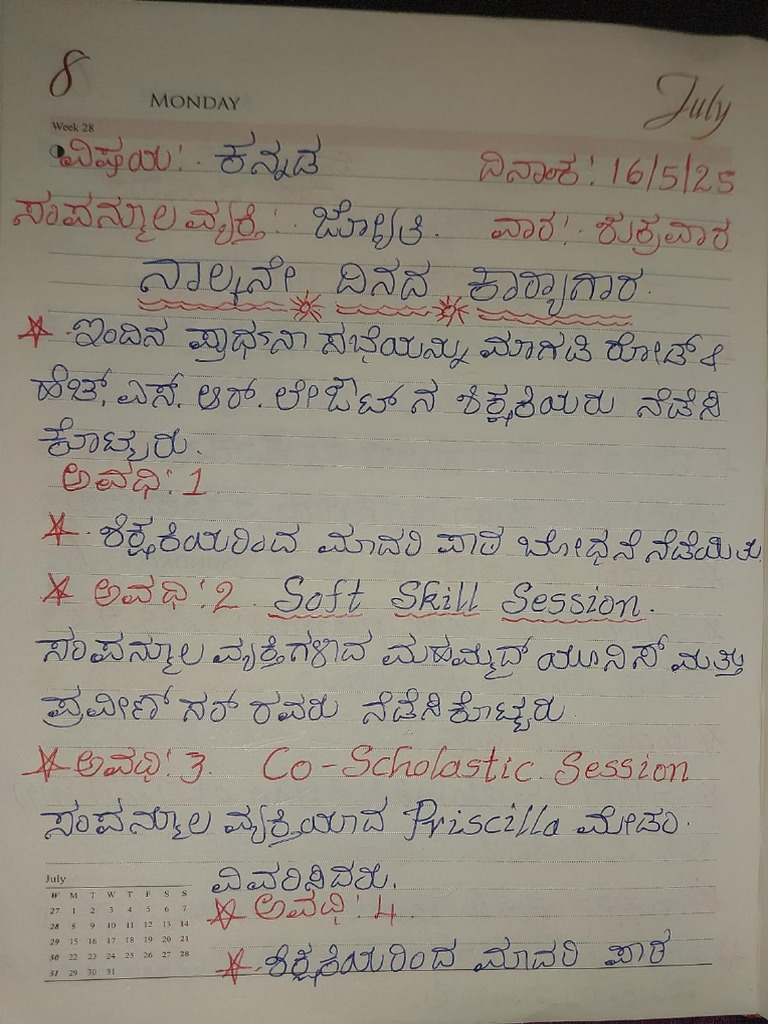 8 MONDAY July
Week 28
ವಿಷಯ: ಕನ್ನಡ ದಿನಾಂಕ: 16/5/25
ಸಂಪನ್ಮೂಲ ವ್ಯಕ್ತಿ: ಜ್ಯೋತಿ. ವಾರ: ಶುಕ್ರವಾರ
ನಾಲ್ಕನೇ ದಿನದ ಕಾರ್ಯಾಗಾರ.
ಇಂದಿನ ಪ್ರಾರ್ಥನಾ ಸಭೆಯನ್ನು ಮಾಗಡಿ ರೋಡ್ &
ಹೆಚ್. ಎಸ್. ಆರ್. ಲೇಔಟ್ ನ ಶಿಕ್ಷಕಿಯರು ನೆಡೆಸಿ
ಕೊಟ್ಟರು.
ಅವಧಿ: 1
ಶಿಕ್ಷಕಿಯರಿಂದ ಮಾದರಿ ಪಾಠ ಬೋಧನೆ ನೆಡೆಯಿತು.
ಅವಧಿ: 2 Soft Skill Session.
ಸಂಪನ್ಮೂಲ ವ್ಯಕ್ತಿಗಳಾದ ಮಹಮ್ಮದ್ ಯೂನಿಸ್ ಮತ್ತು
ಪ್ರವೀಣ್ ಸರ್ ರವರು ನೆಡೆಸಿಕೊಟ್ಟರು
ಅವಧಿ: 3. Co-Scholastic Session
ಸಂಪನ್ಮೂಲ ವ್ಯಕ್ತಿಯಾದ Priscilla ಮೇಡಂ.
ವಿವರಿಸಿದರು.
ಅವಧಿ: 4
ಶಿಕ್ಷಕಿಯರಿಂದ ಮಾದರಿ ಪಾಠ
July
W M T W T F S S
27 1 2 3 4 5 6 7
28 8 9 10 11 12 13 14
29 15 16 17 18 19 20 21
30 22 23 24 25 26 27 28
31 29 30 31